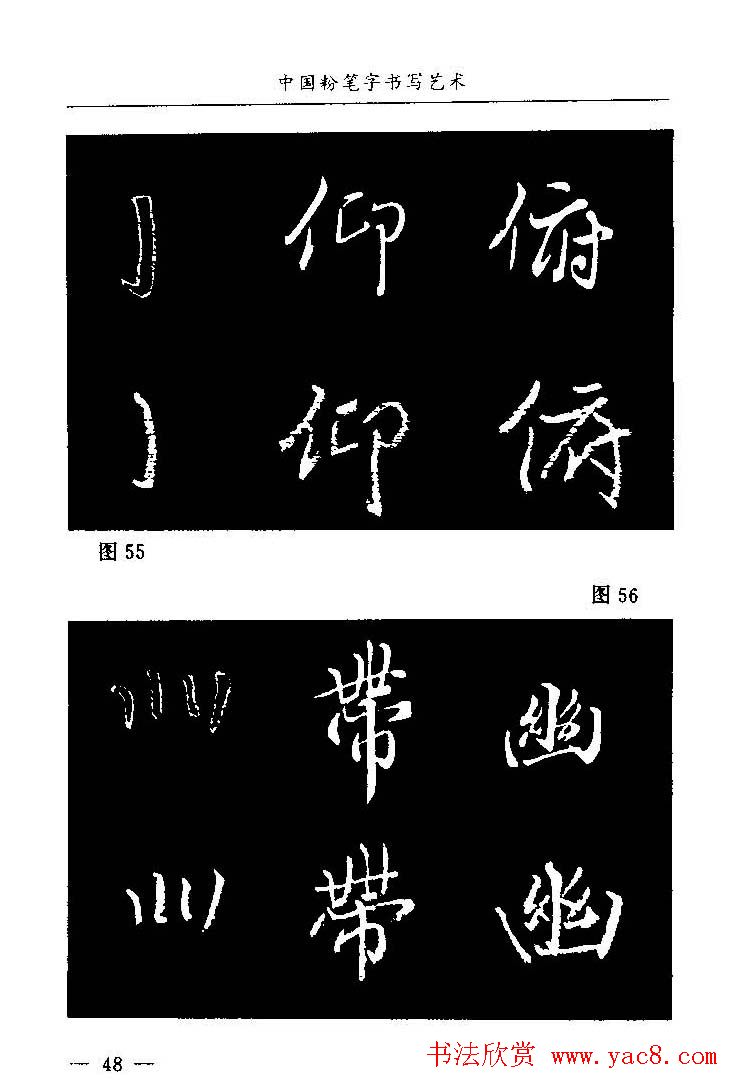 中国粉笔字书写艺术
亅 仰 俯
亅 仰 俯
图 55
图 56
帶 幽
帶 幽
— 48 —
书法欣赏 www.yac8.com